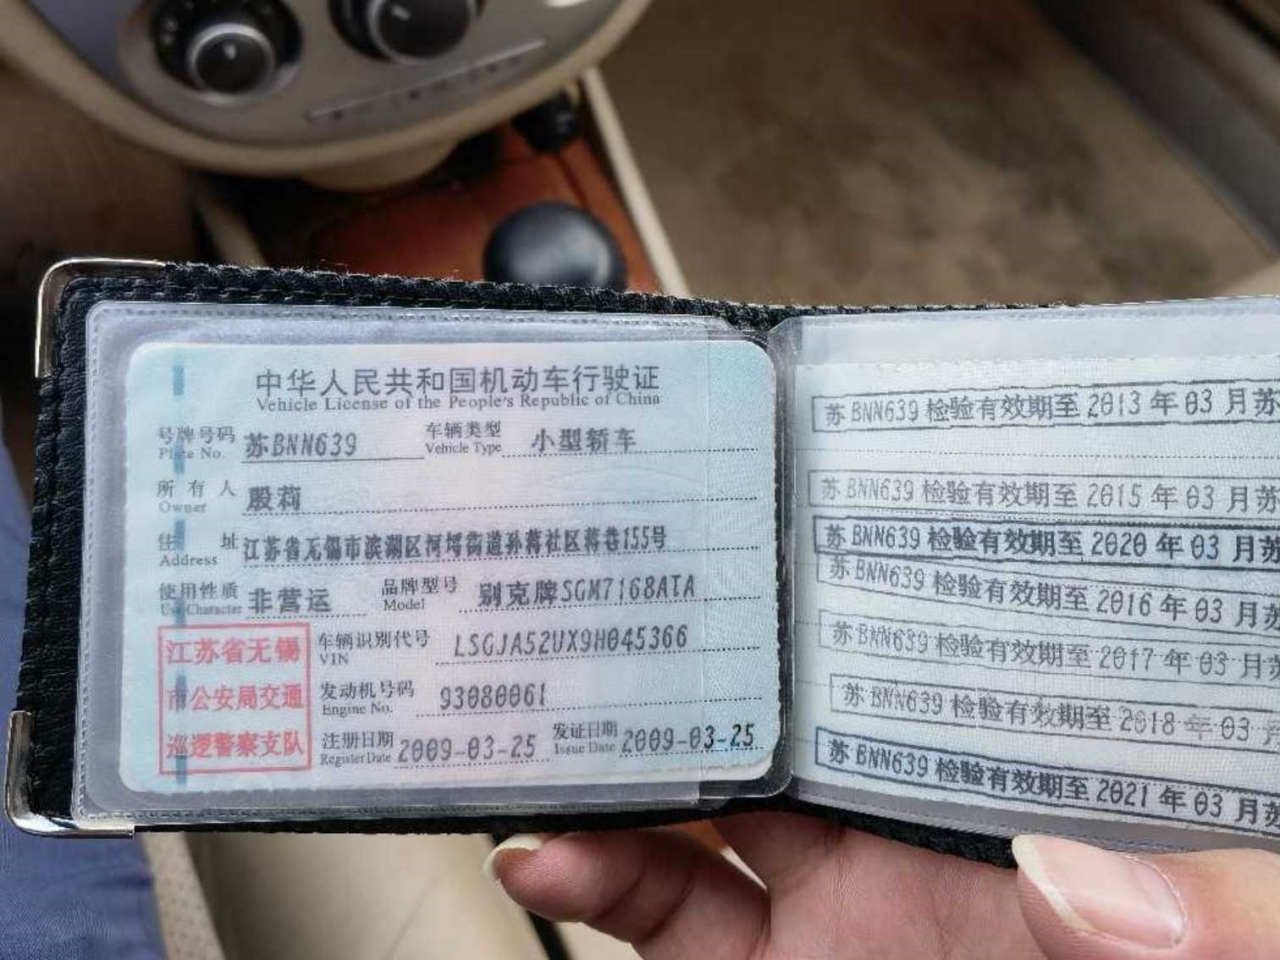 中华人民共和国机动车行驶证
Vehicle License of the People's Republic of China
号牌号码 苏BNN639 车辆类型 小型轿车
Plate No. Vehicle Type
所有人 殷莉
Owner
住址 江苏省无锡市滨湖区河埒街道孙蒋社区蒋巷155号
Address
使用性质 非营运 品牌型号 别克牌SGM7168ATA
Use Character Model
车辆识别代号 LSGJA52UX9H045366
VIN
发动机号码 93080061
Engine No.
注册日期 2009-03-25 发证日期 2009-03-25
Register Date Issue Date
江苏省无锡
市公安局交通
巡逻警察支队
苏BNN639 检验有效期至 2013 年 03 月苏
苏BNN639 检验有效期至 2015 年 03 月苏
苏BNN639 检验有效期至 2020 年 03 月苏
苏BNN639 检验有效期至 2016 年 03 月苏
苏BNN639 检验有效期至 2017 年 03 月苏
苏BNN639 检验有效期至 2018 年 03 月
苏BNN639 检验有效期至 2021 年 03 月苏